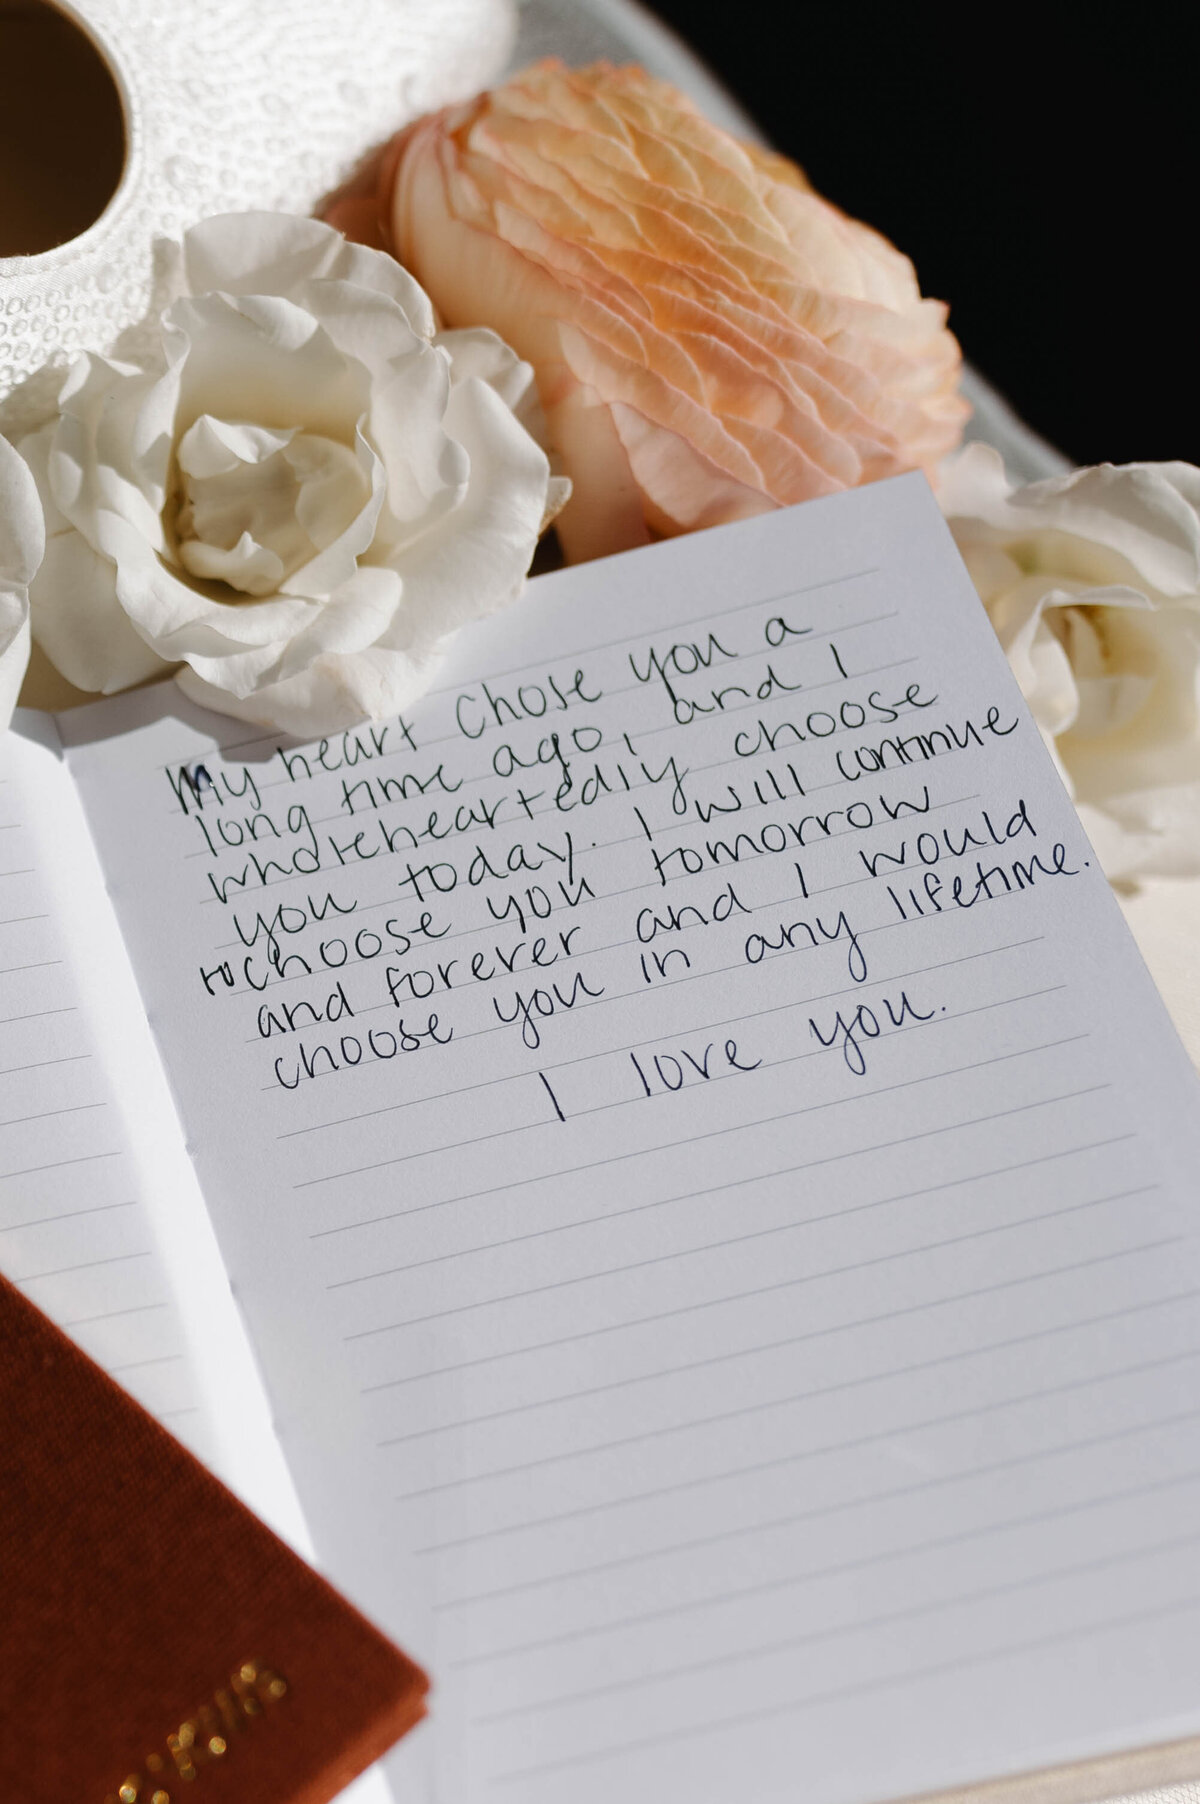 My heart chose you a
long time ago, and I
wholeheartedly choose
you today. I will continue
to choose you tomorrow
and forever and I would
choose you in any lifetime.
I love you.